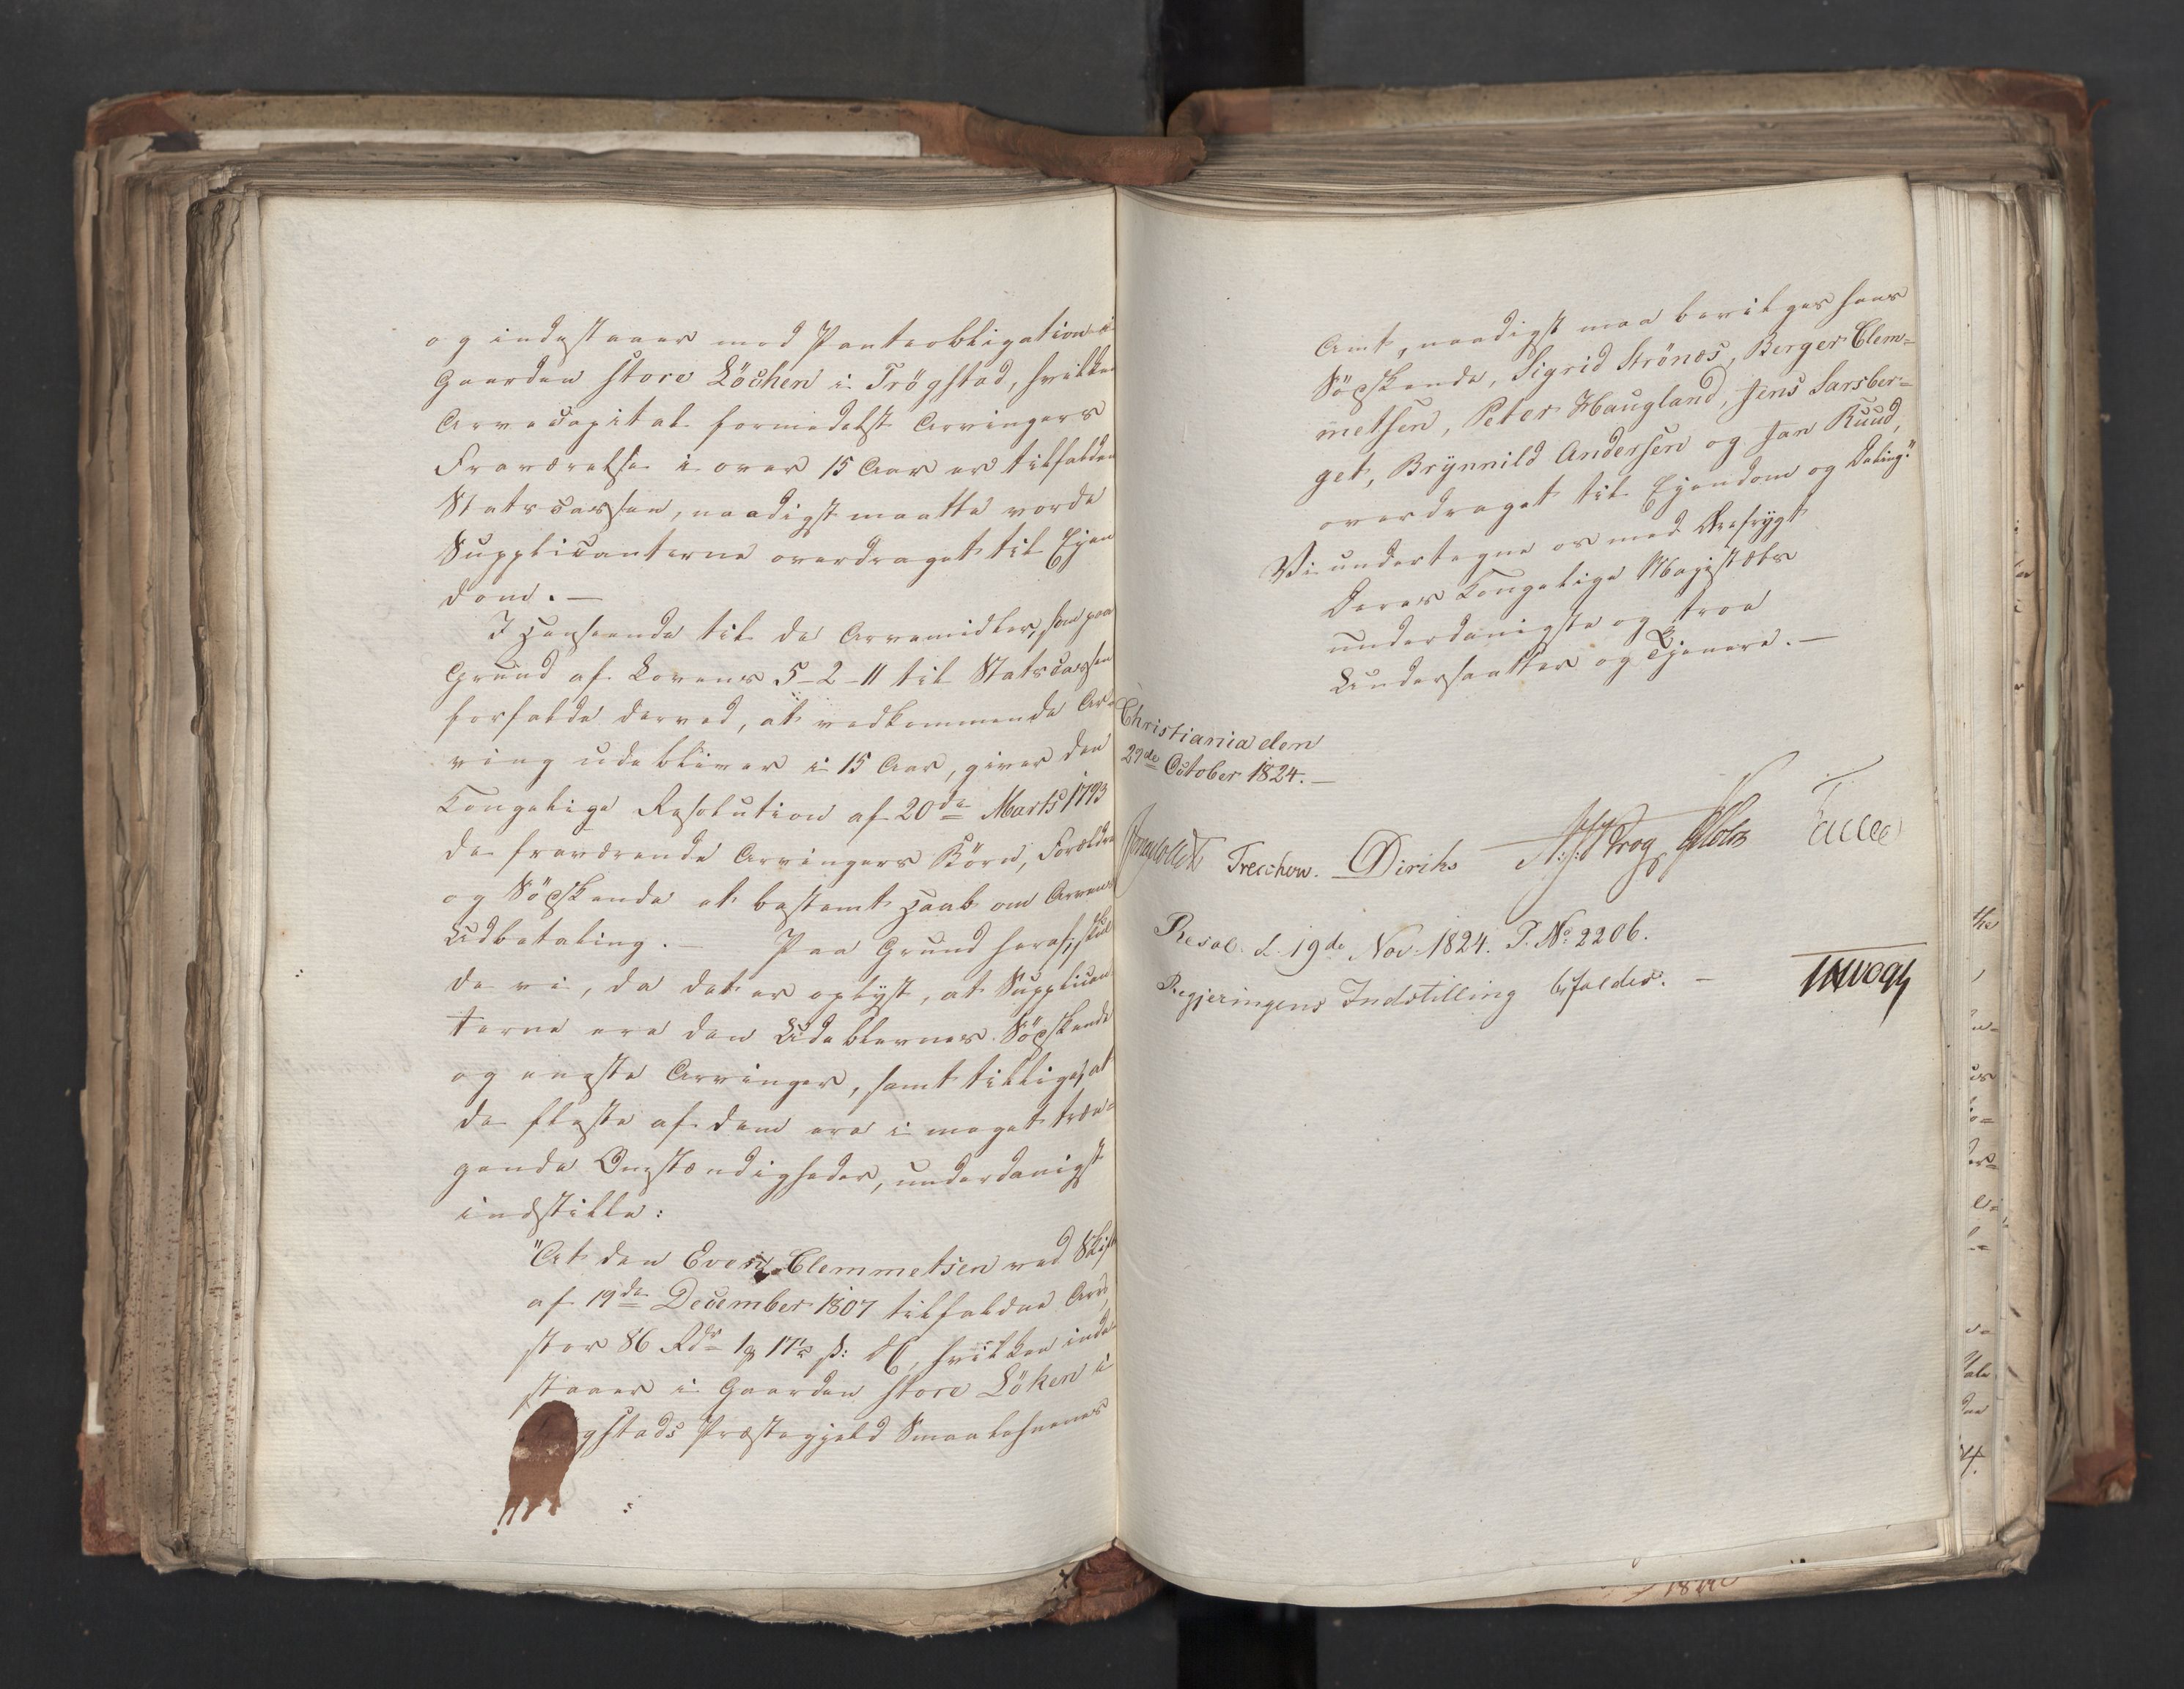 og indestaaer mod Panteobligation i
Gaarden store Löchen i Trögstad, hvilken
Arvecapital formedelst Arvingers
Fraværelse i over 15 Aar er tilfalden
Statscassen, naadigst maatte vorde
Supplicanterne overdraget til Ejen
dom. —
I Henseende til de Arvemidler, som paa
Grund af Lovens 5-2-11 til Statscassen
forfalde derved, at vedkommende Ar-
ving udebliver i 15 Aar, giver den
Kongelige Resolution af 20de Marts 1793
de fraværende Arvingers Börn, Forældre
og Södskende et bestemt Haab om Arvens
Udbetaling. — Paa Grund heraf, skul
de vi, da det er oplyst, at Supplican
terne ere den Udeblevnes Södskende
og eneste Arvinger, samt tillige, at
de fleste af dem ere i meget træn-
gende Omstændigheder, underdanigst
indstille:
"At den Even Clemmetsen ved Skifte
af 19de December 1807 tilfaldne Arv,
stor 86 Rdr 1 17 ß:, hvilken inde
staaer i Gaarden store Löken i
gstads Præstegjeld Smaalehnenes
Amt, naadigst maa bevilges hans
Södskende, Sigrid Strönes, Berger Clem-
metsen, Peter Haugland, Jens Sarsber-
get, Brÿnnild Andersen og Jan Ruud,
overdraget til Ejendom og Deling."
Vi undertegne os med Ærefrygt
Deres Kongelige Majestæts
underdanigste og troe
Undersaatter og Tjenere. —
Christiania den
27de October 1824. —
Jonas Collett Treschow. Diriks Krog Holst Falsen
Resol. d. 19de Nov. 1824. P. No. 2206.
Regjeringens Indstilling bifaldes. —
Vogt